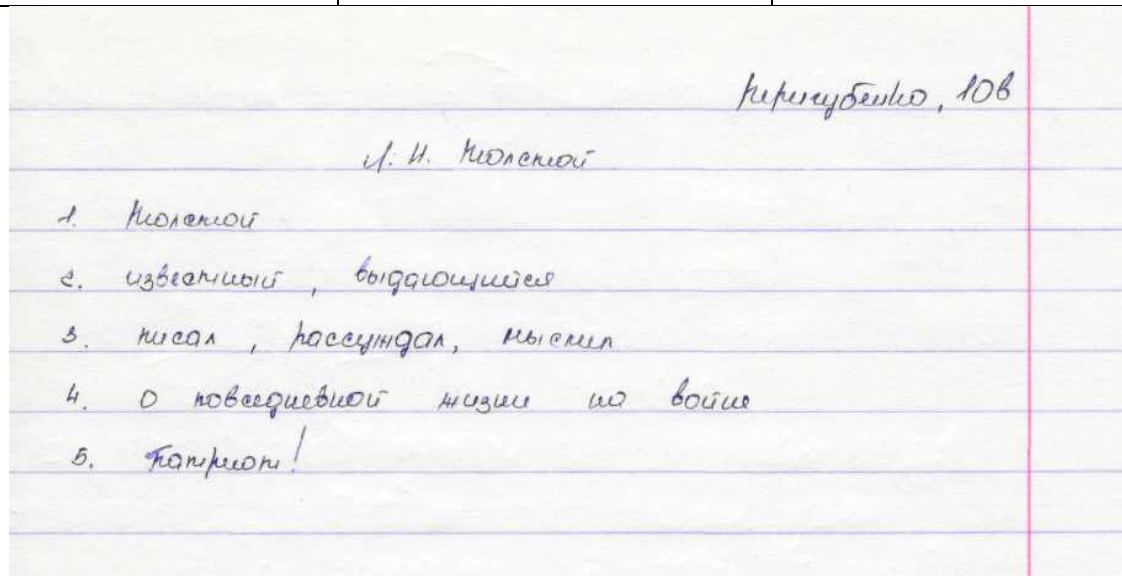 10в
Л. Н. Толстой
1. Толстой
2. известный, выдающийся
3. писал, рассуждал, мыслил
4. О повседневной жизни на войне
5. Патриот!